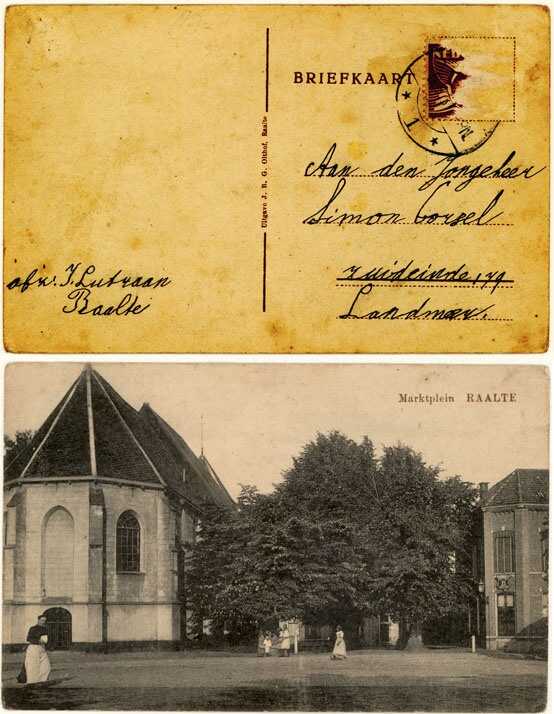 BRIEFKAART
★ 1 ★
Uitgave J. R. G. Olthof, Raalte
Aan den Jongeheer
Simon Gorsel
zuideinde, 79
Landsmeer.
afz: J. Lutraan
Raalte
Marktplein RAALTE